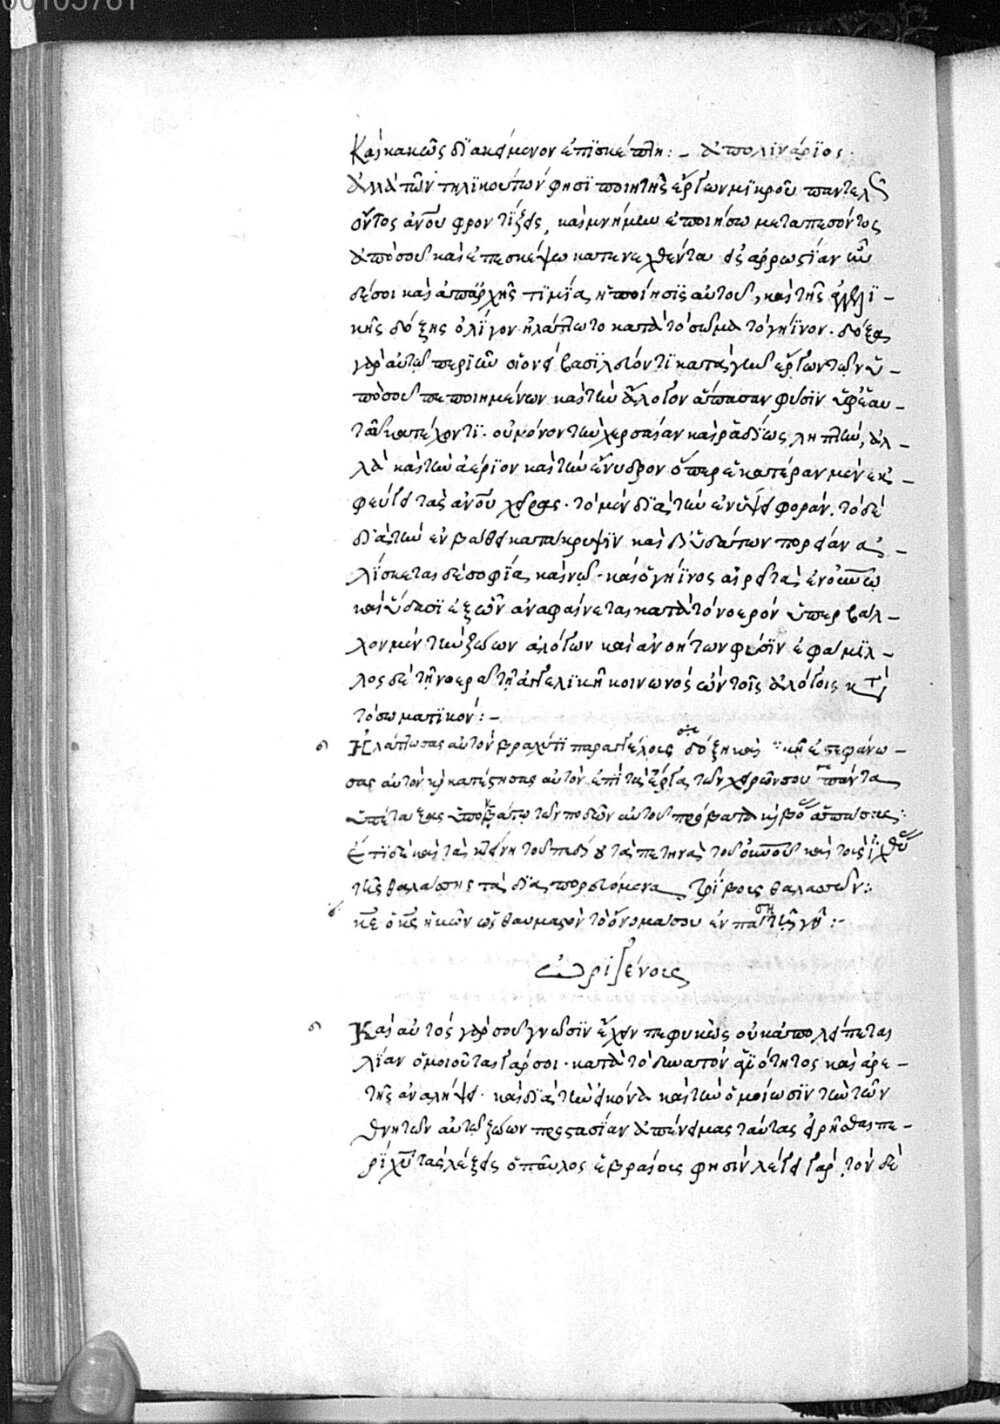 00105761
Καὶ κακῶς διακείμενον ἐπισκέπτη :– Ἀπολινάριος.
Ἀλλὰ τῶν τηλικούτων φησὶ ποιητὴς ἔργων μικροῦ παντελῶς
ὄντος ἀνου φροντίζεις, καὶ μνήμην ἐποιήσω μεταπεσόντος
ἀπὸ σοῦ καὶ ἐπεσκέψω κατενεχθέντα εἰς ἀρρωστίαν
δέ σοι καὶ ἀπαρχῆς τιμία ἡ ποίησις αὐτοῦ, καὶ τῆς ἀγγελι–
κῆς δόξης ὀλίγον ἠλάττωτο κατὰ τὸ σῶμα τὸ γήϊνον. δόξα
γὰρ αὐτῷ περὶ οἱονεὶ βασιλεύοντι κατὰ γῆν ἔργων τῶν ὑ–
πὸ σοῦ πεποιημένων καὶ τὴν ἄλογον ἅπασαν φύσιν ὑφ' ἑαυ–
τὸν κατέχοντι. οὐ μόνον τὴν χερσαίαν καὶ ῥαδίως ληπτήν, ἀλ–
λὰ καὶ τὴν ἀέριον καὶ τὴν ἔνυδρον ὅπερ ἑκατέραν μὲν ἐκ–
φεύγει τὰς ἀνου χεῖρας. τὸ μὲν διὰ τὴν ἐν ὕψει φοράν. τὸ δὲ
διὰ τὴν ἐν βάθει κατάκρυψιν καὶ δι' ὑδάτων πορείαν ἁ–
λίσκεται δὲ σοφία καὶ νῷ. καὶ ὁ γήϊνος αἱρεῖ τὰ ἐν οὐνῷ
καὶ ὕδασι ἐξ ὧν ἀναφαίνεται κατὰ τὸ νοερὸν ὑπερβάλ–
λον μὲν τὴν ζώων ἀλόγων καὶ ἀνοήτων φύσιν ἐφάμιλ–
λος δὲ τῇ νοερᾷ τῇ ἀγγελικῇ κοινωνὸς ὢν τοῖς ἀλόγοις κτ
τὸ σωματικόν :–
Ἠλάττωσας αὐτὸν βραχύ τι παραγγέλους δόξῃ καὶ τιμῇ ἐστεφάνω–
σας αὐτὸν κ κατέστησας αὐτὸν ἐπὶ τὰ ἔργα τῶν χειρῶν σου πάντα
ὑπέταξας ὑποκάτω τῶν ποδῶν αὐτοῦ πρόβατα κ βόας ἁπάσας:
ἔτι δὲ καὶ τὰ κτήνη τοῦ πεδίου τὰ πετηνὰ τοῦ οὐνου καὶ τοὺς ἰχθύας
τῆς θαλάσσης τὰ διαπορευόμενα τρίβους θαλασσῶν:
κε ὁ κς ἡμῶν ὡς θαυμαστὸν τὸ ὄνομά σου ἐν πάσῃ τῇ γῇ :–
Ὠριγένους
Καὶ αὐτὸς γὰρ σοῦ γνῶσιν ἔχειν πεφυκὼς οὐκ ἀπολείπεται
λίαν ὁμοιοῦται γάρ σοι. κατὰ τὸ δυνατὸν ἁγιότητος καὶ ἀρε–
τῆς ἀναλήψει. καὶ διὰ τὴν εἰκόνα καὶ τὴν ὁμοίωσιν τὴν τῶν
θνητῶν αὐτῷ ζώων προστασίαν ἀπένειμας ταύτας εἰρῆσθαι πε–
ρὶ χυ τὰς λέξεις ὁ παῦλος ἑβραίοις φησὶν λέγει γάρ. τὸν δὲ